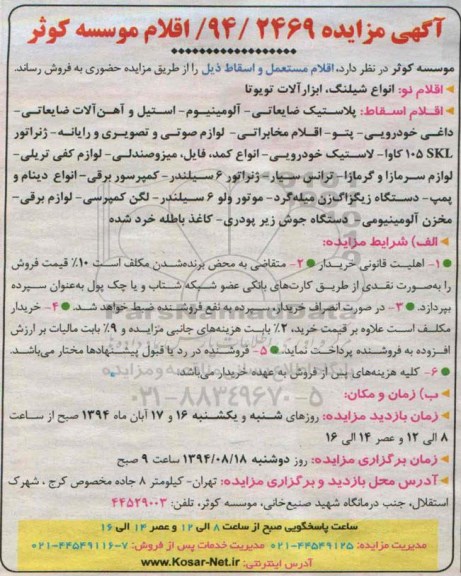 آگهی مزایده ۲۴۶۹ /۹۴/ اقلام موسسه کوثر
موسسه کوثر در نظر دارد، اقلام مستعمل و اسقاط ذیل را از طریق مزایده حضوری به فروش رساند.
اقلام نو: انواع شیلنگ، ابزارآلات تویوتا
اقلام اسقاط: پلاستیک ضایعاتی- آلومینیوم- استیل و آهن‌آلات ضایعاتی-
داغی خودرویی- پتو- اقلام مخابراتی- لوازم صوتی و تصویری و رایانه- ژنراتور
۱۰۵ SKL کاوا- لاستیک خودرویی- انواع کمد، فایل، میزوصندلی- لوازم کفی تریلی-
لوازم سرمازا و گرمازا- ترانس سیار- ژنراتور ۶ سیلندر- کمپرسور برقی- انواع دینام و
پمپ- دستگاه زیگزاگ‌زن میله‌گرد- موتور ولو ۶ سیلندر- لگن کمپرسی- لوازم برقی-
مخزن آلومینیومی- دستگاه جوش زیر پودری- کاغذ باطله خرد شده
الف) شرایط مزایده:
۱- اهلیت قانونی خریدار ۲- متقاضی به محض برنده‌شدن مکلف است ۱۰٪ قیمت فروش
را به‌صورت نقدی از طریق کارت‌های بانکی عضو شبکه شتاب و یا چک پول به‌عنوان سپرده
بپردازد. ۳- در صورت انصراف خریدار، سپرده به نفع فروشنده ضبط خواهد شد. ۴- خریدار
مکلف است علاوه بر قیمت خرید، ۲٪ بابت هزینه‌های جانبی مزایده و ۹٪ بابت مالیات بر ارزش
افزوده به فروشنده پرداخت نماید. ۵- فروشنده در رد یا قبول پیشنهادها مختار می‌باشد.
۶- کلیه هزینه‌های پس از فروش به عهده خریدار می‌باشد.
ب) زمان و مکان:
زمان بازدید مزایده: روزهای شنبه و یکشنبه ۱۶ و ۱۷ آبان ماه ۱۳۹۴ صبح از ساعت
۸ الی ۱۲ و عصر ۱۴ الی ۱۶
زمان برگزاری مزایده: روز دوشنبه ۱۳۹۴/۰۸/۱۸ ساعت ۹ صبح
آدرس محل بازدید و برگزاری مزایده: تهران- کیلومتر ۸ جاده مخصوص کرج ، شهرک
استقلال، جنب درمانگاه شهید صنیع‌خانی، موسسه کوثر، تلفن: ۴۴۵۲۹۰۰۳
ساعت پاسخگویی صبح از ساعت ۸ الی ۱۲ و عصر ۱۴ الی ۱۶
مدیریت مزایده: ۴۴۵۴۹۱۲۵-۰۲۱ مدیریت خدمات پس از فروش: ۷-۴۴۵۴۹۱۱۶-۰۲۱
آدرس اینترنتی: www.Kosar-Net.ir
ParsNamadData
۰۲۱-۸۸۳۴۹۶۷۰-۵